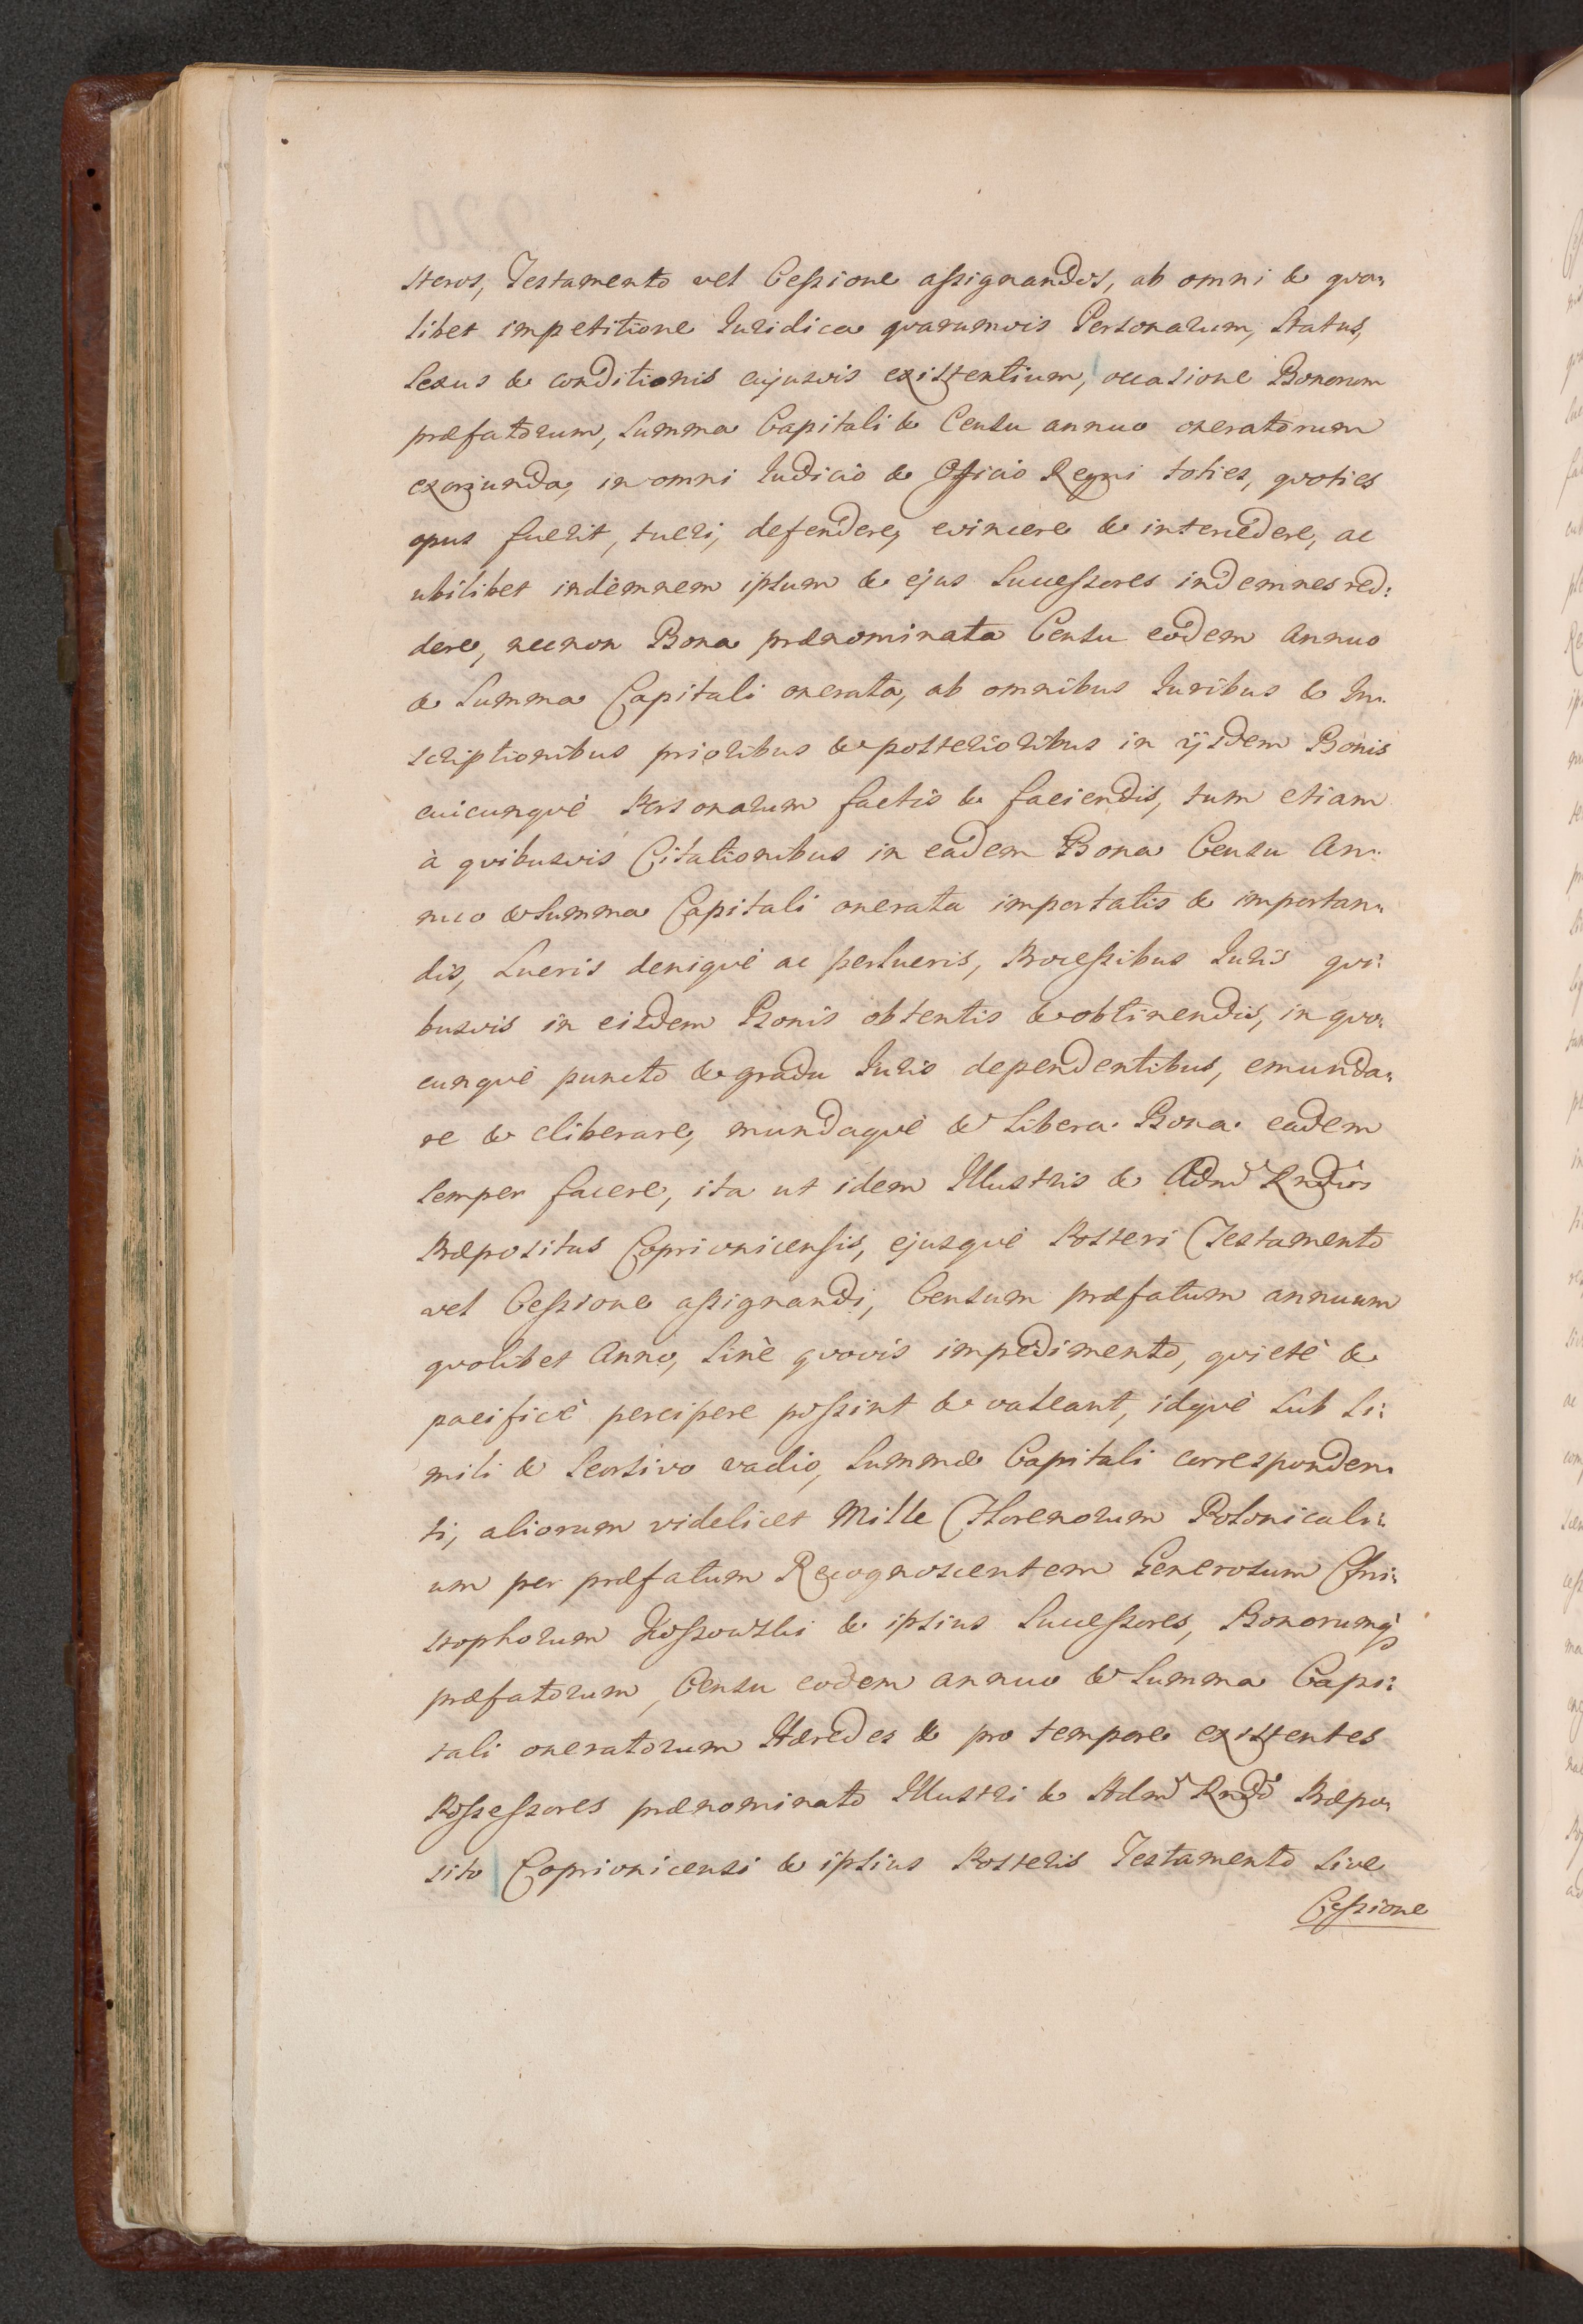 steros, Testamento vel Cessione assignandos, ab omni & qva„
libet impetitione Juridica qvarumvis Personarum, Status,
Sexus & conditionis cujusvis existentium, occasione Bonorum
præfatorum, Summa Capitali & Censu annuo oneratorum
exorjunda, in omni Judicio & Officio Regni toties, qvoties
opus fuerit, tueri, defendere, evincere & intercedere, ac
ubilibet indemnem ipsum & ejus Successores indemnes red:
dere, necnon Bona prænominata Censu eodem Annuo
& Summa Capitali onerata, ab omnibus Juribus & In„
scriptionibus prioribus & posterioribus in ijsdem Bonis
cuicunqvè Personarum factis & faciendis, tum etiam
à qvibusvis Citationibus in eadem Bona Censu An„
nuo & Summa Capitali onerata importatis & importan„
dis, Lucris deniqvè ac perlucris, Processibus Juris qvi:
busvis in eisdem Bonis obtentis & obtinendis, in qvo„
cunqvè puncto & gradu Juris dependentibus, emunda„
re & eliberare, mundaqvè & Libera Bona eadem
semper facere, ita ut idem Illustris & Adm Rndus
Præpositus Coprivnicensis, ejusqvè Posteri Testamento
vel Cessione assignandi, Censum præfatum annuum
qvolibet Anno, Sinè qvovis impedimento, qvietè &
pacificè percipere possint & valeant, idqvè sub Si:
mili & Seorsivo vadio, Summæ Capitali corresponden„
ti, aliorum videlicet Mille Florenorum Polonicali:
um per præfatum Recognoscentem Generosum Chri:
stophorum Kossowski & ipsius Successores, Bonorumq
præfatorum, Censu eodem annuo & Summa Capi:
tali oneratorum Hæredes & pro tempore existentes
Possessores prænominato Illustri & Adm Rndo Præpo„
sito Coprivnicensi & ipsius Posteris Testamento Sive
Cessione